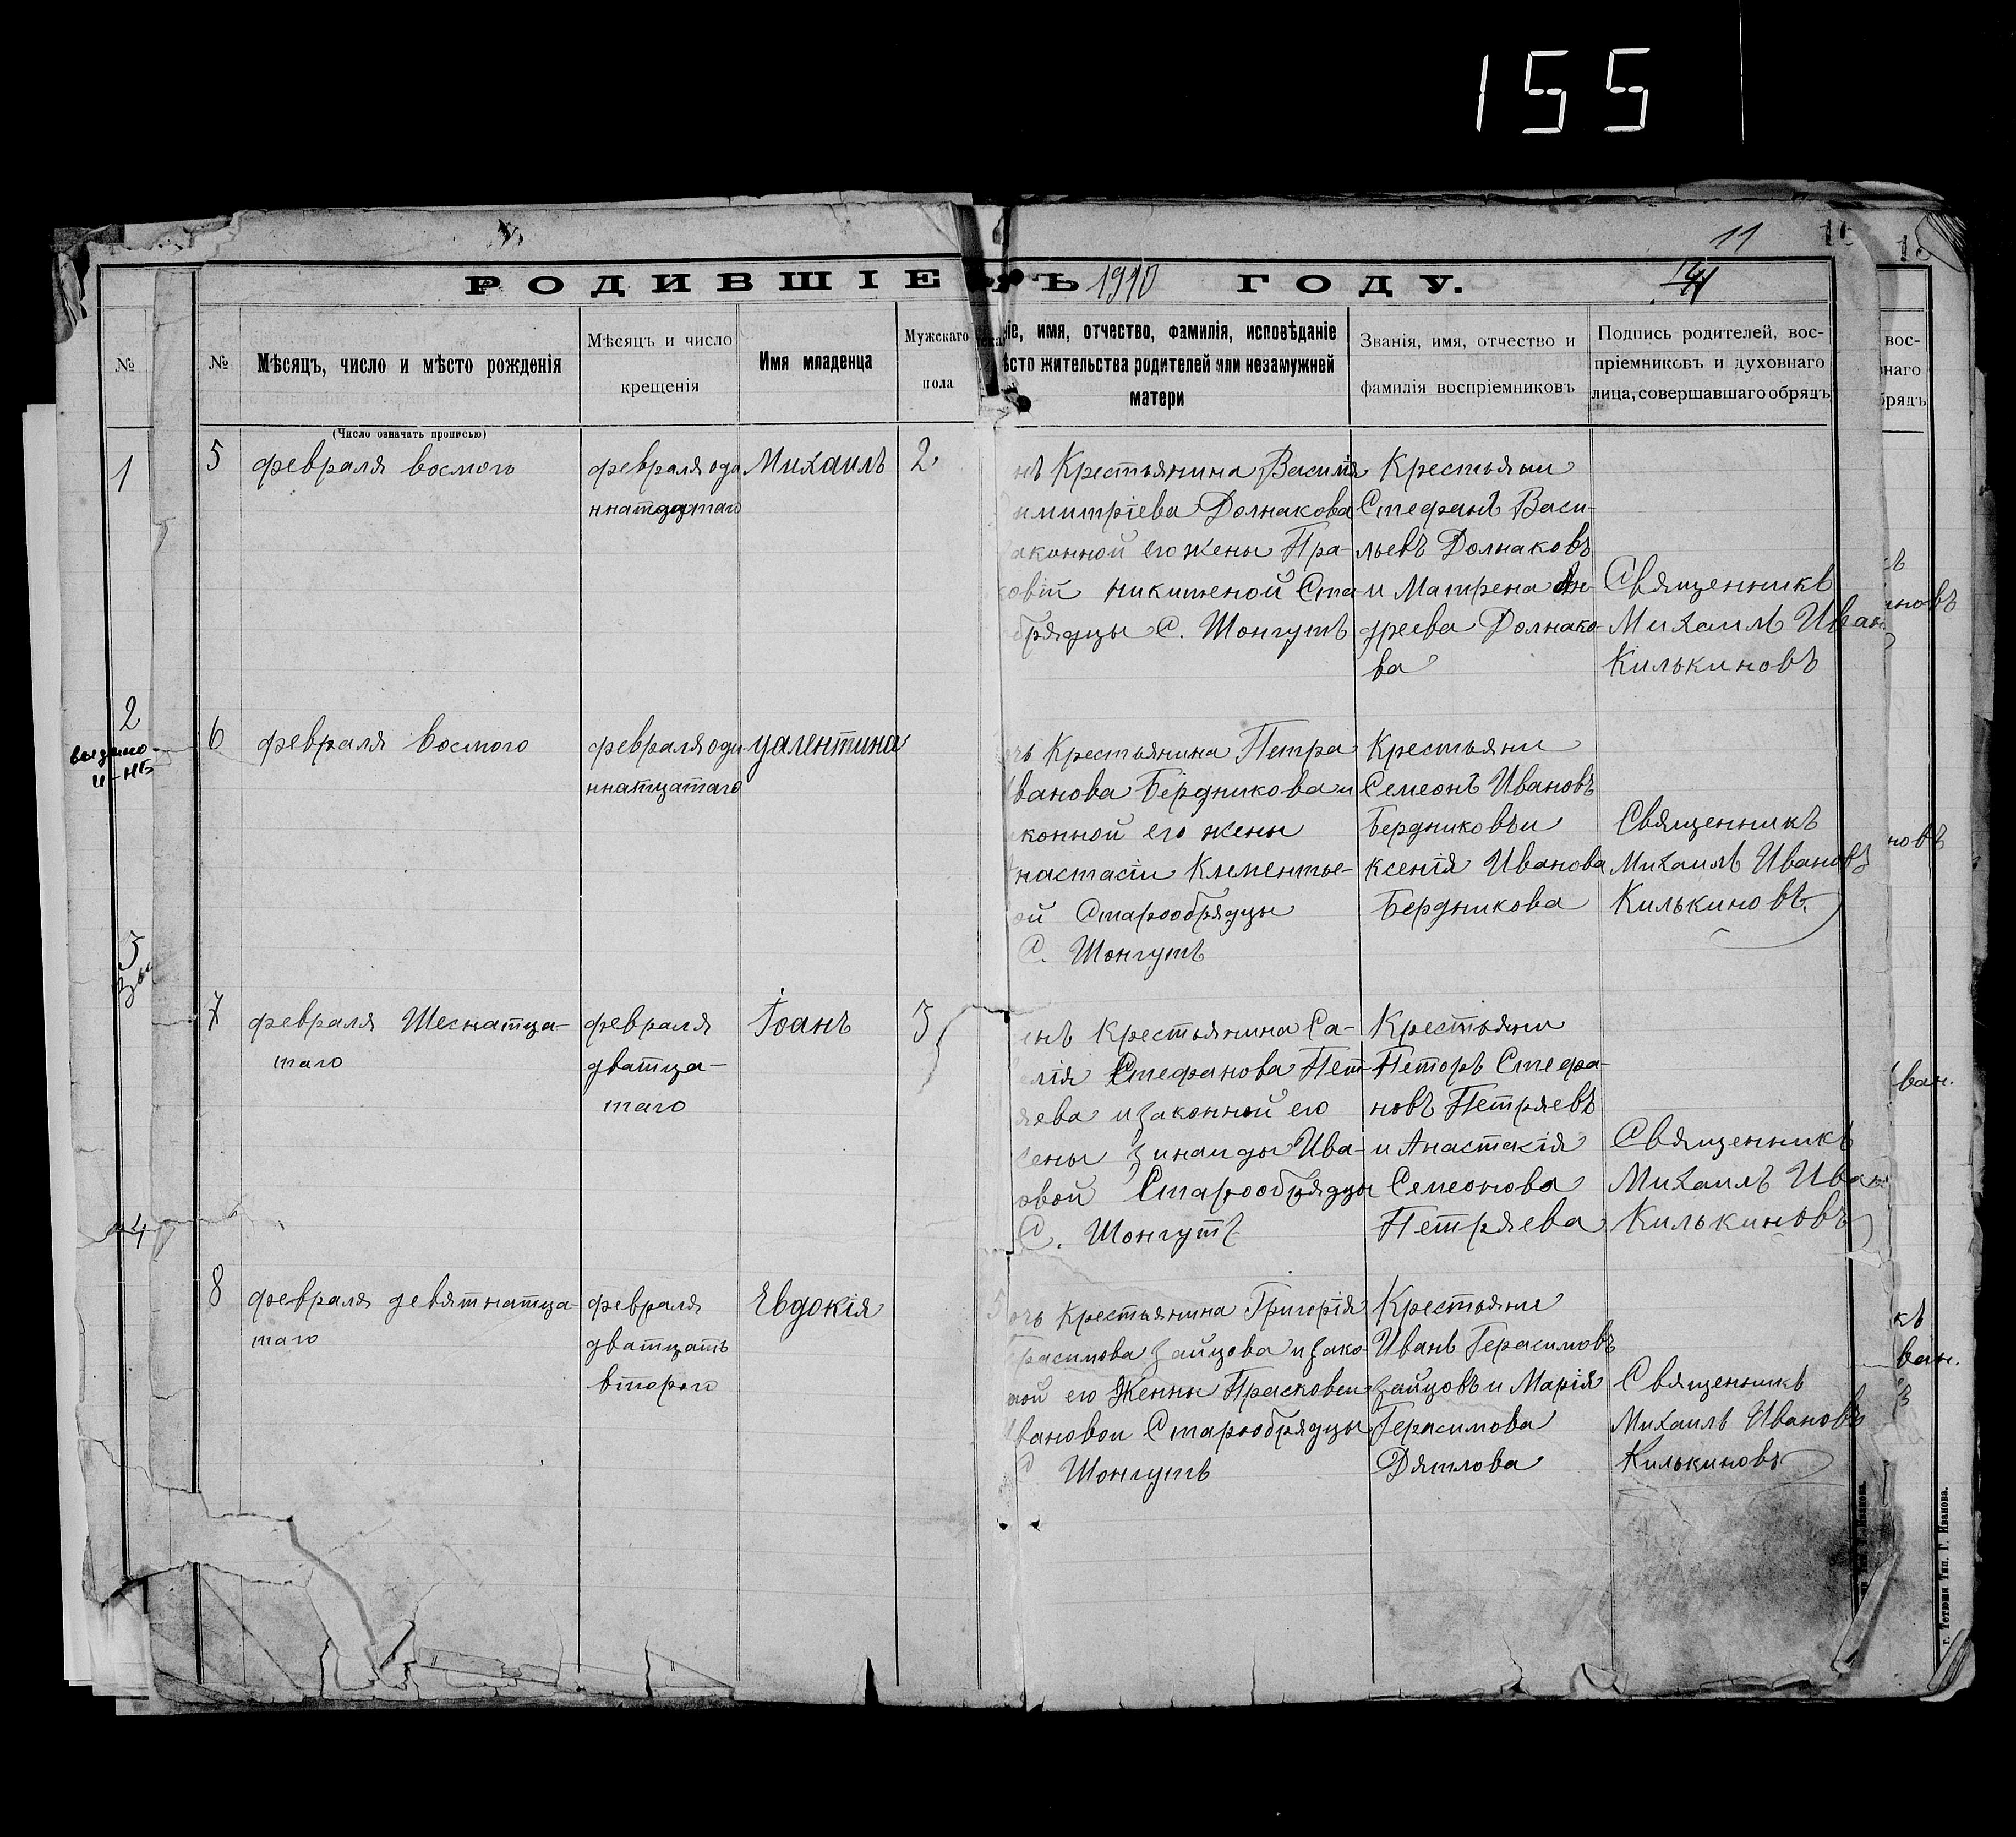 155
11
РОДИВШІЕ Ъ 1910 ГОДУ.
№
№
Мѣсяцъ, число и мѣсто рожденія
(Число означать прописью)
Мѣсяцъ и число
крещенія
Имя младенца
Мужскаго
пола
іе, имя, отчество, фамилія, исповѣданіе
ѣсто жительства родителей или незамужней
матери
Званія, имя, отчество и
фамилія воспріемниковъ
Подпись родителей, вос-
пріемниковъ и духовнаго
лица, совершавшаго обрядъ
вос-
наго
брядъ
1
2
3
4
5
февраля восмого
февраля оди
ннатцатаго
Михаилъ
2
нъ Крестьянина Василія
имитріева Долнакова
аконной его жены Пра-
ковіи никитеной Ста-
обрядцы С. Шонгутъ
Крестьяни
Стефанъ Васи-
льевъ Долнаковъ
и Матрена Ан-
дреева Долнако-
ва
Священникъ
Михаилъ Иван
Килькиновъ
6
февраля восмого
февраля оди-
ннатцатаго
уалентина
чь Крестьянина Петра
ванова Бердникова и
конной его жены
настасіи Клементье-
ой Старообрядцы
С. Шонгутъ
Крестьяни
Семеонъ Ивановъ
Бердниковъ и
ксенія Иванова
Бердникова
Священникъ
Михаилъ Ивановъ
Килькиновъ
7
февраля Шеснатца-
таго
февраля
дватца-
таго
Іоанъ
3
нъ Крестьянина Са-
елія Стефанова Пет-
яева и законной его
ены Зинаиды Ива-
овой Старообрядцы
С. Шонгутъ
Крестьяни
Петоръ Стефа-
новъ Петряевъ
и Анастасія
Семеонова
Петряева
Священникъ
Михаилъ Иван
Килькиновъ
8
февраля девятнатца-
таго
февраля
дватцать
второго
Евдокія
5
очь Крестьянина Григорія
ерасимова Зайцова и зако-
ной его Женны Прасковеи
вановои Старообрядцы
С Шонгутъ
Крестьяни
Иванъ Герасимовъ
Зайцовъ и Марія
Герасимова
Дятлова
Священникъ
Михаилъ Ивановъ
Килькиновъ
новъ
новъ
ван.
къ
ван.
г. Тетюши Тип. Г. Иванова.